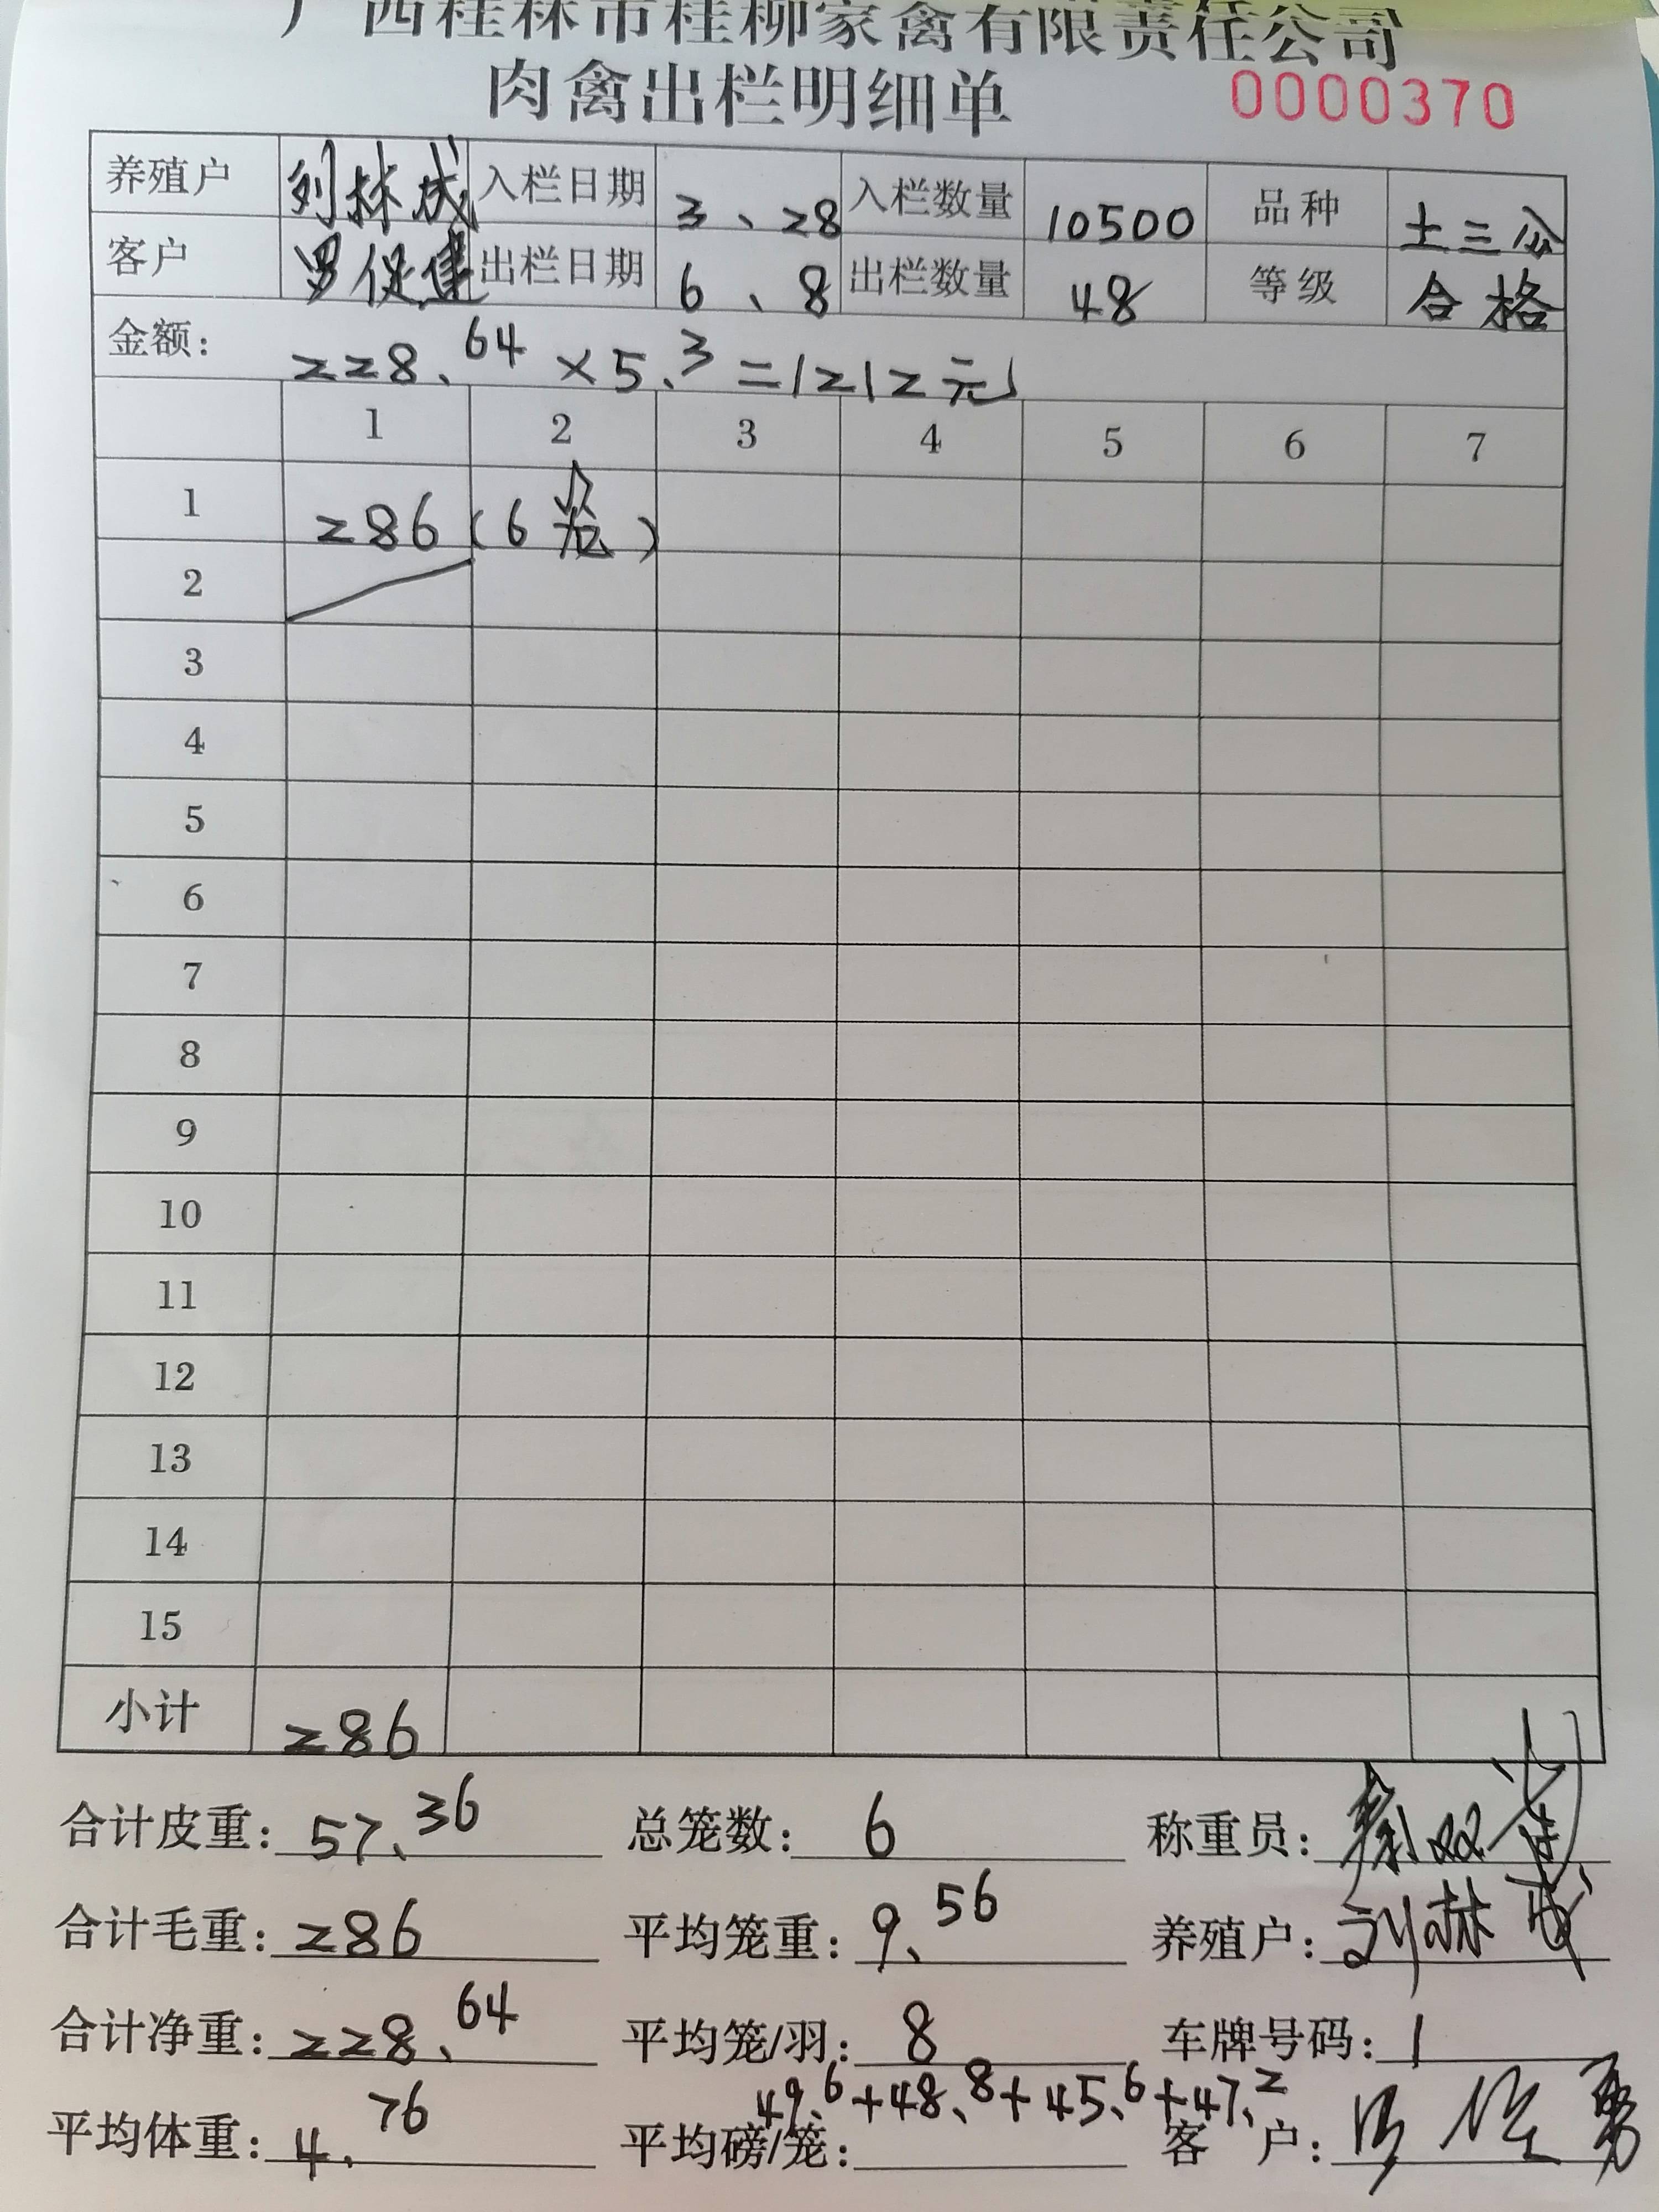 广西桂林市桂柳家禽有限责任公司
肉禽出栏明细单 0000370
养殖户 刘林成 入栏日期 3、28 入栏数量 10500 品种 土三公
客户 罗促建 出栏日期 6、8 出栏数量 48 等级 合格
金额: 228.64×5.3=1212元
1 2 3 4 5 6 7
1 286 (6笼)
2
3
4
5
6
7
8
9
10
11
12
13
14
15
小计 286
合计皮重: 57.36 总笼数: 6 称重员:
合计毛重: 286 平均笼重: 9.56 养殖户: 刘林成
合计净重: 228.64 平均笼/羽: 8 车牌号码: 1
49.6+48.8+45.6+47.2
平均体重: 4.76 平均磅/笼: 客 户: